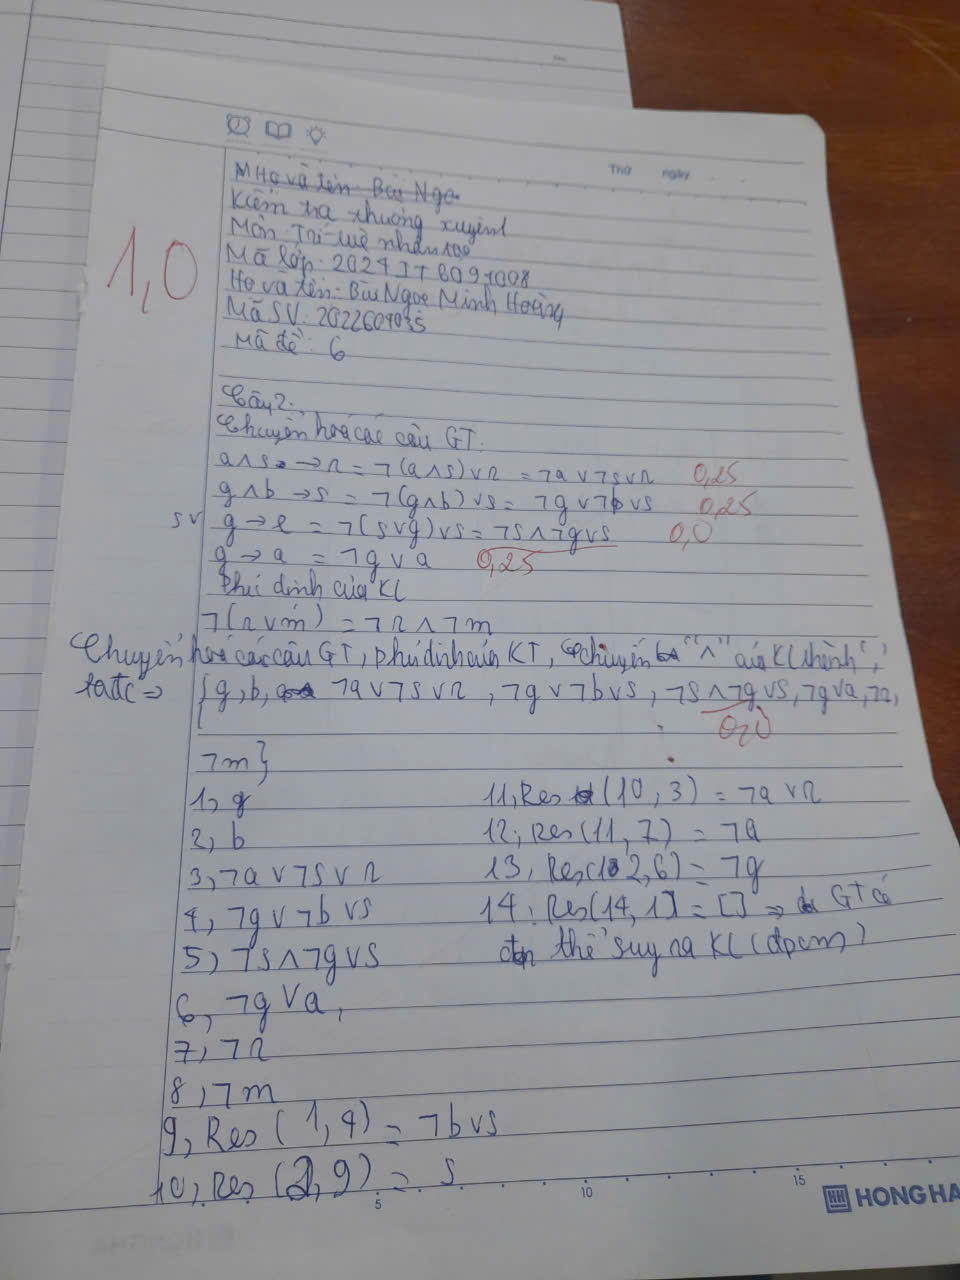 Thứ ngày
MHọ và tên: Bùi Ngo
Kiểm tra thường xuyên 1
Môn: Trí tuệ nhân tạo
Mã lớp: 20241IT6094008
Họ và tên: Bùi Ngọc Minh Hoàng
Mã SV: 2022604035
Mã đề: 6
1,0
Câu 2:
Chuyển hoá các câu GT:
a∧s → r = ¬(a∧s)∨r = ¬a∨¬s∨r 0,25
g∧b → s = ¬(g∧b)∨s = ¬g∨¬b∨s 0,25
s∨ g → e = ¬(s∨g)∨s = ¬s∧¬g∨s 0,0
g → a = ¬g∨a 0,25
Phủ định của KL
¬(r∨m) = ¬r∧¬m
Chuyển hoá các câu GT, phủ định của KT, chuyển "∧" của KL thành ","
ta đc ⇒ {g, b, ¬a∨¬s∨r, ¬g∨¬b∨s, ¬s∧¬g∨s, ¬g∨a, ¬r,
0,0
¬m}
1, g
2, b
3, ¬a∨¬s∨r
4, ¬g∨¬b∨s
5) ¬s∧¬g∨s
6, ¬g∨a,
7, ¬r
8, ¬m
9, Res(1,4) = ¬b∨s
10, Res(2,9) = s
11, Res(10,3) = ¬a∨r
12, Res(11,7) = ¬a
13, Res(12,6) = ¬g
14, Res(14,1] = [] ⇒ GT có
thể suy ra KL (đpcm)
5 10 15
HH HONG HA